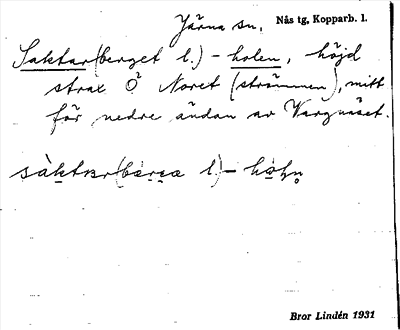 Järna sn. Nås tg, Kopparb. l.
Saktar(berget l.) - holen, höjd
strax Ö Noret (strömmen), mitt
för nedre ändan av Vargnäset.
l) -
Bror Lindén 1931